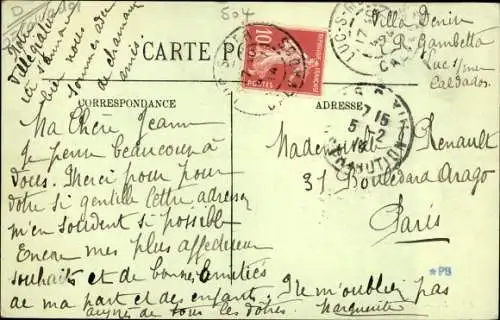 D
504
Villégiature
bien nous
sommes avec
de charmants
amis.
CARTE PO
10
POSTES
LUC-S-M
Villa Denin
R. Gambetta
Luc s/mer
Calvados
CORRESPONDANCE
ADRESSE
Ma Chère Jeanne
Je pense beaucoup à
vous. Merci pour
votre si gentille lettre, adressez
m'en souvent si possible
Encore mes plus affectueux
souhaits et de bonnes amitiés
de ma part et des enfants,
de tous les vôtres.
Ne m'oublier pas
Marguerite
7 15
5
DISTRIBUTION
Mademoiselle Renault
31 Boulevard Arago
Paris
*PB